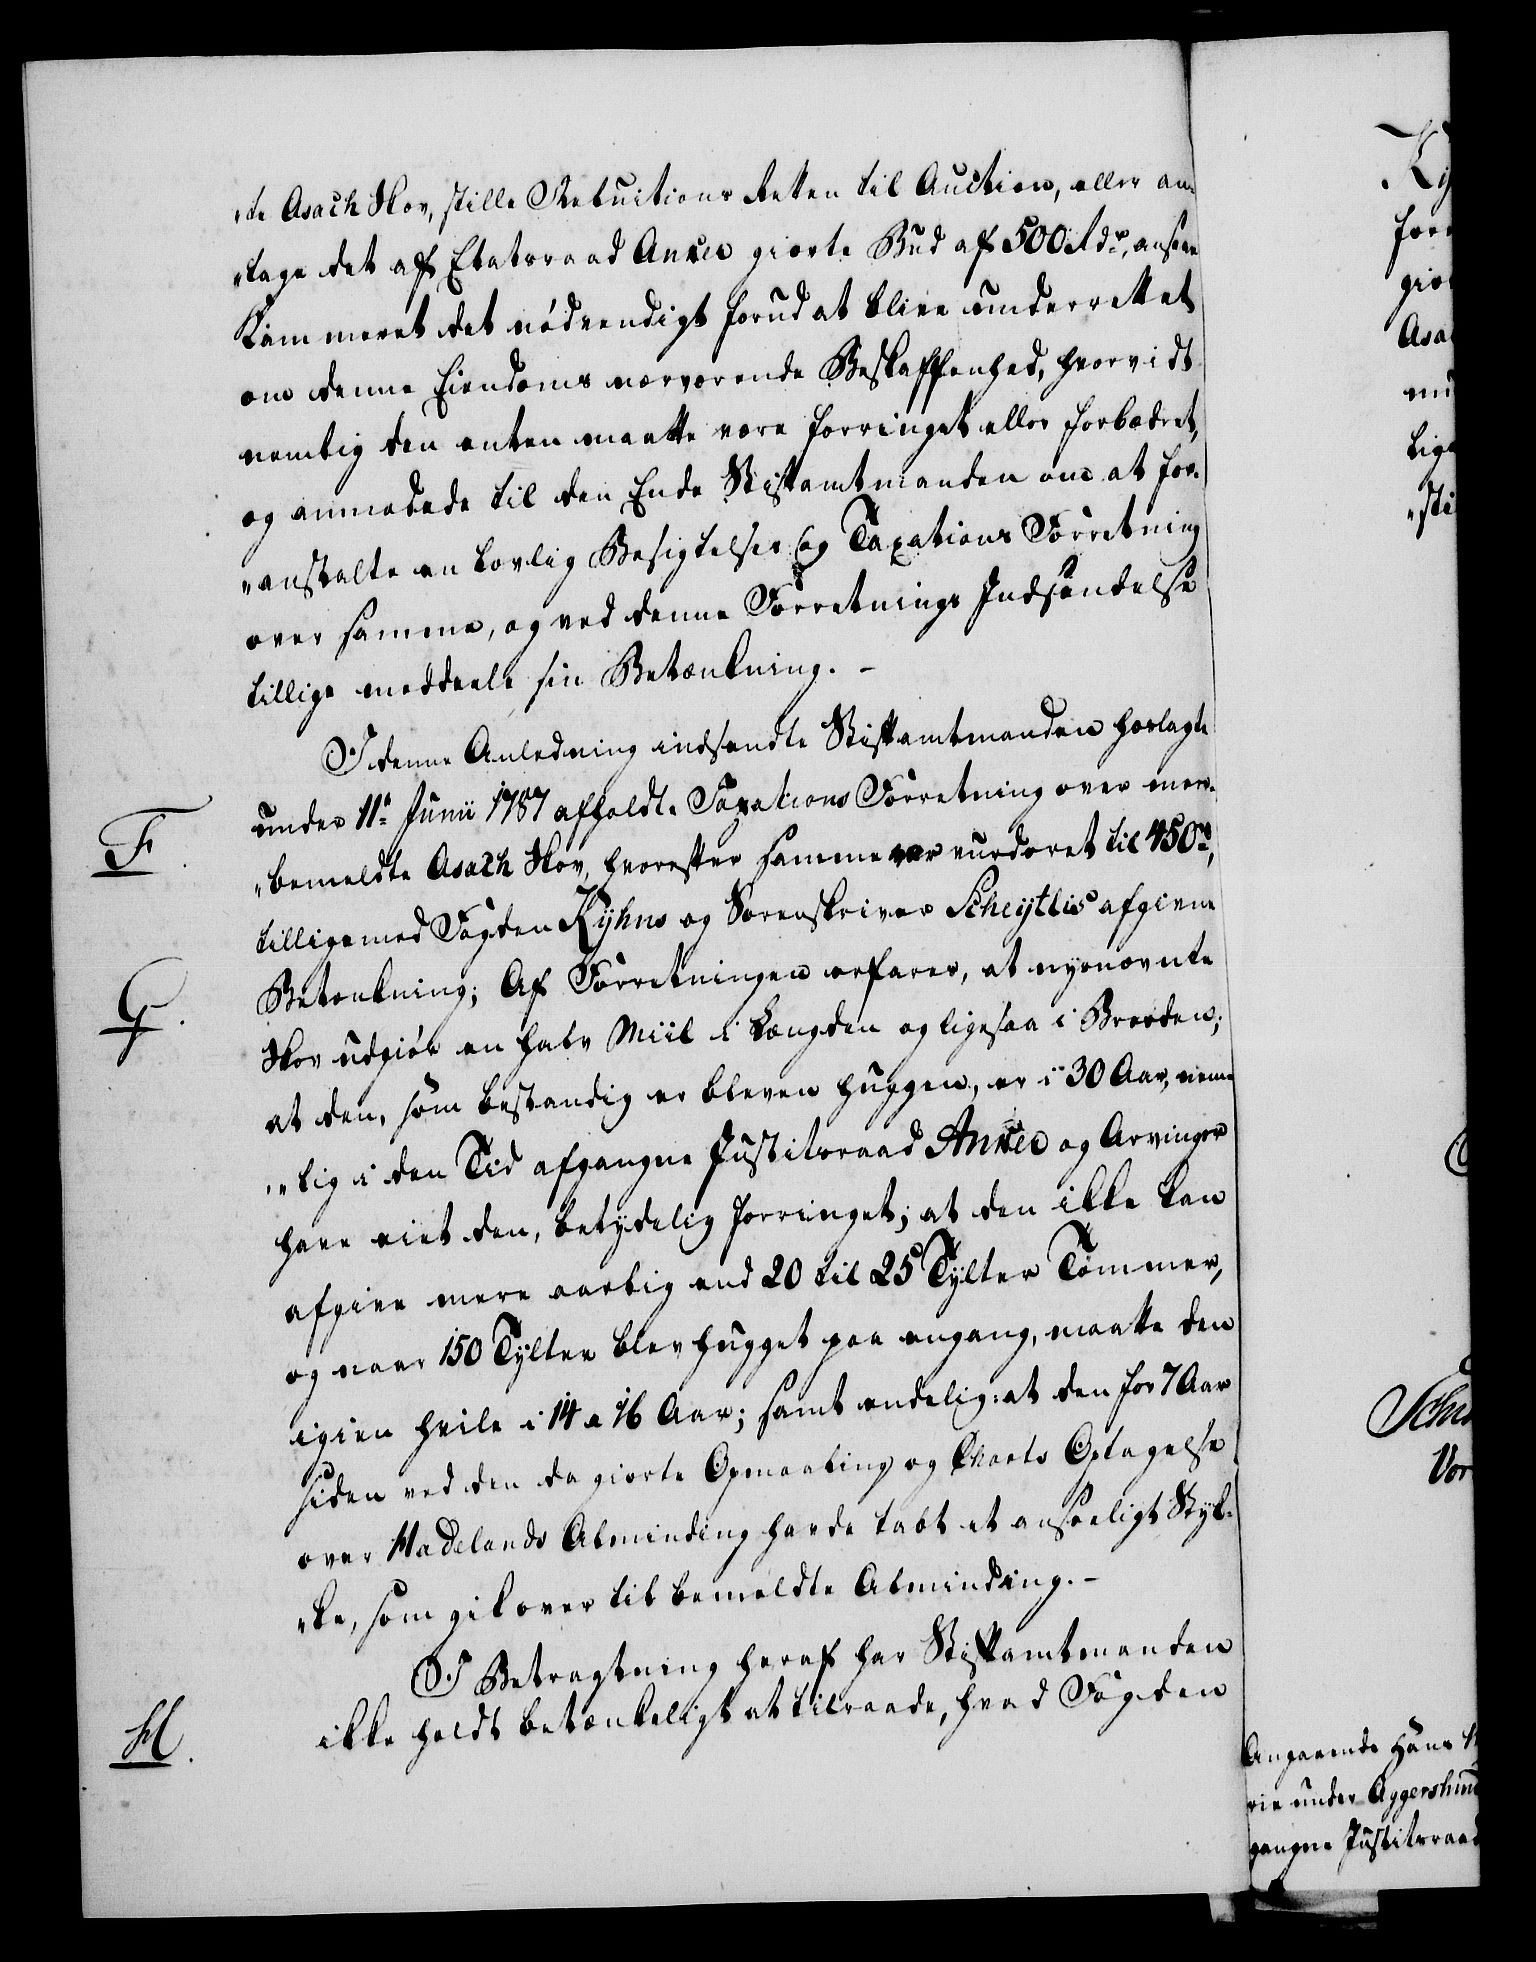 „te Asach Skov, stille Reluitions Retten til Auction, eller an„
„tage det af Etatsraad Anker giorte Bud af 500 Rdr, ansaae
Kammeret det nödvendigt forud at blive underrettet
om denne Eiendoms nærværende Beskaffenhed, hvorvidt
nemlig den enten maatte være forringet eller forbædret,
og anmodede til den Ende Stiftamtmanden om at for„
„anstalte en lovlig Besigtelses og Taxations Forretning
over samme, og ved denne Forretnings Indsændelse
tillige meddeele sin Betænkning. –
I denne Anledning indsendte Stiftamtmanden hoslagte
F. under 11te Junii 1787 afholdte Taxations Forretning over meer„
„bemeldte Asach Skov, hvorefter samme var vurderet til 450 rd,
tilligemed Fogden Kyhns og Sorenskriver Scheytlis afgivne
G. Betænkning; Af Forretningen erfares, at nysnævnte
Skov udgiör en halv Miil i Længden og ligesaa i Breeden;
at den, som bestandig er bleven huggen, er i 30 Aar, nem„
„lig i den Tid afgangne Justitsraad Anker og Arvinger
have eiet den, betydelig forringet; at den ikke kan
afgive mere aarlig end 20 til 25 Tylter Tömmer,
og naar 150 Tylter blev hugget paa engang, maatte den
igien hvile i 14 a 16 Aar; samt endelig: at den for 7 Aar
siden ved den da giorte Opmaaling og Charts Optagelse
over Hadelands Alminding havde tabt et anseeligt Styk„
„ke, som gik over til bemeldte Alminding. –
I Betragtning heraf har Stiftamtmanden
H. ikke holdt betænkeligt at tilraade, hvad Fogden
Angaaende Hans
rie under Aggershuu
gangne Justitsraad